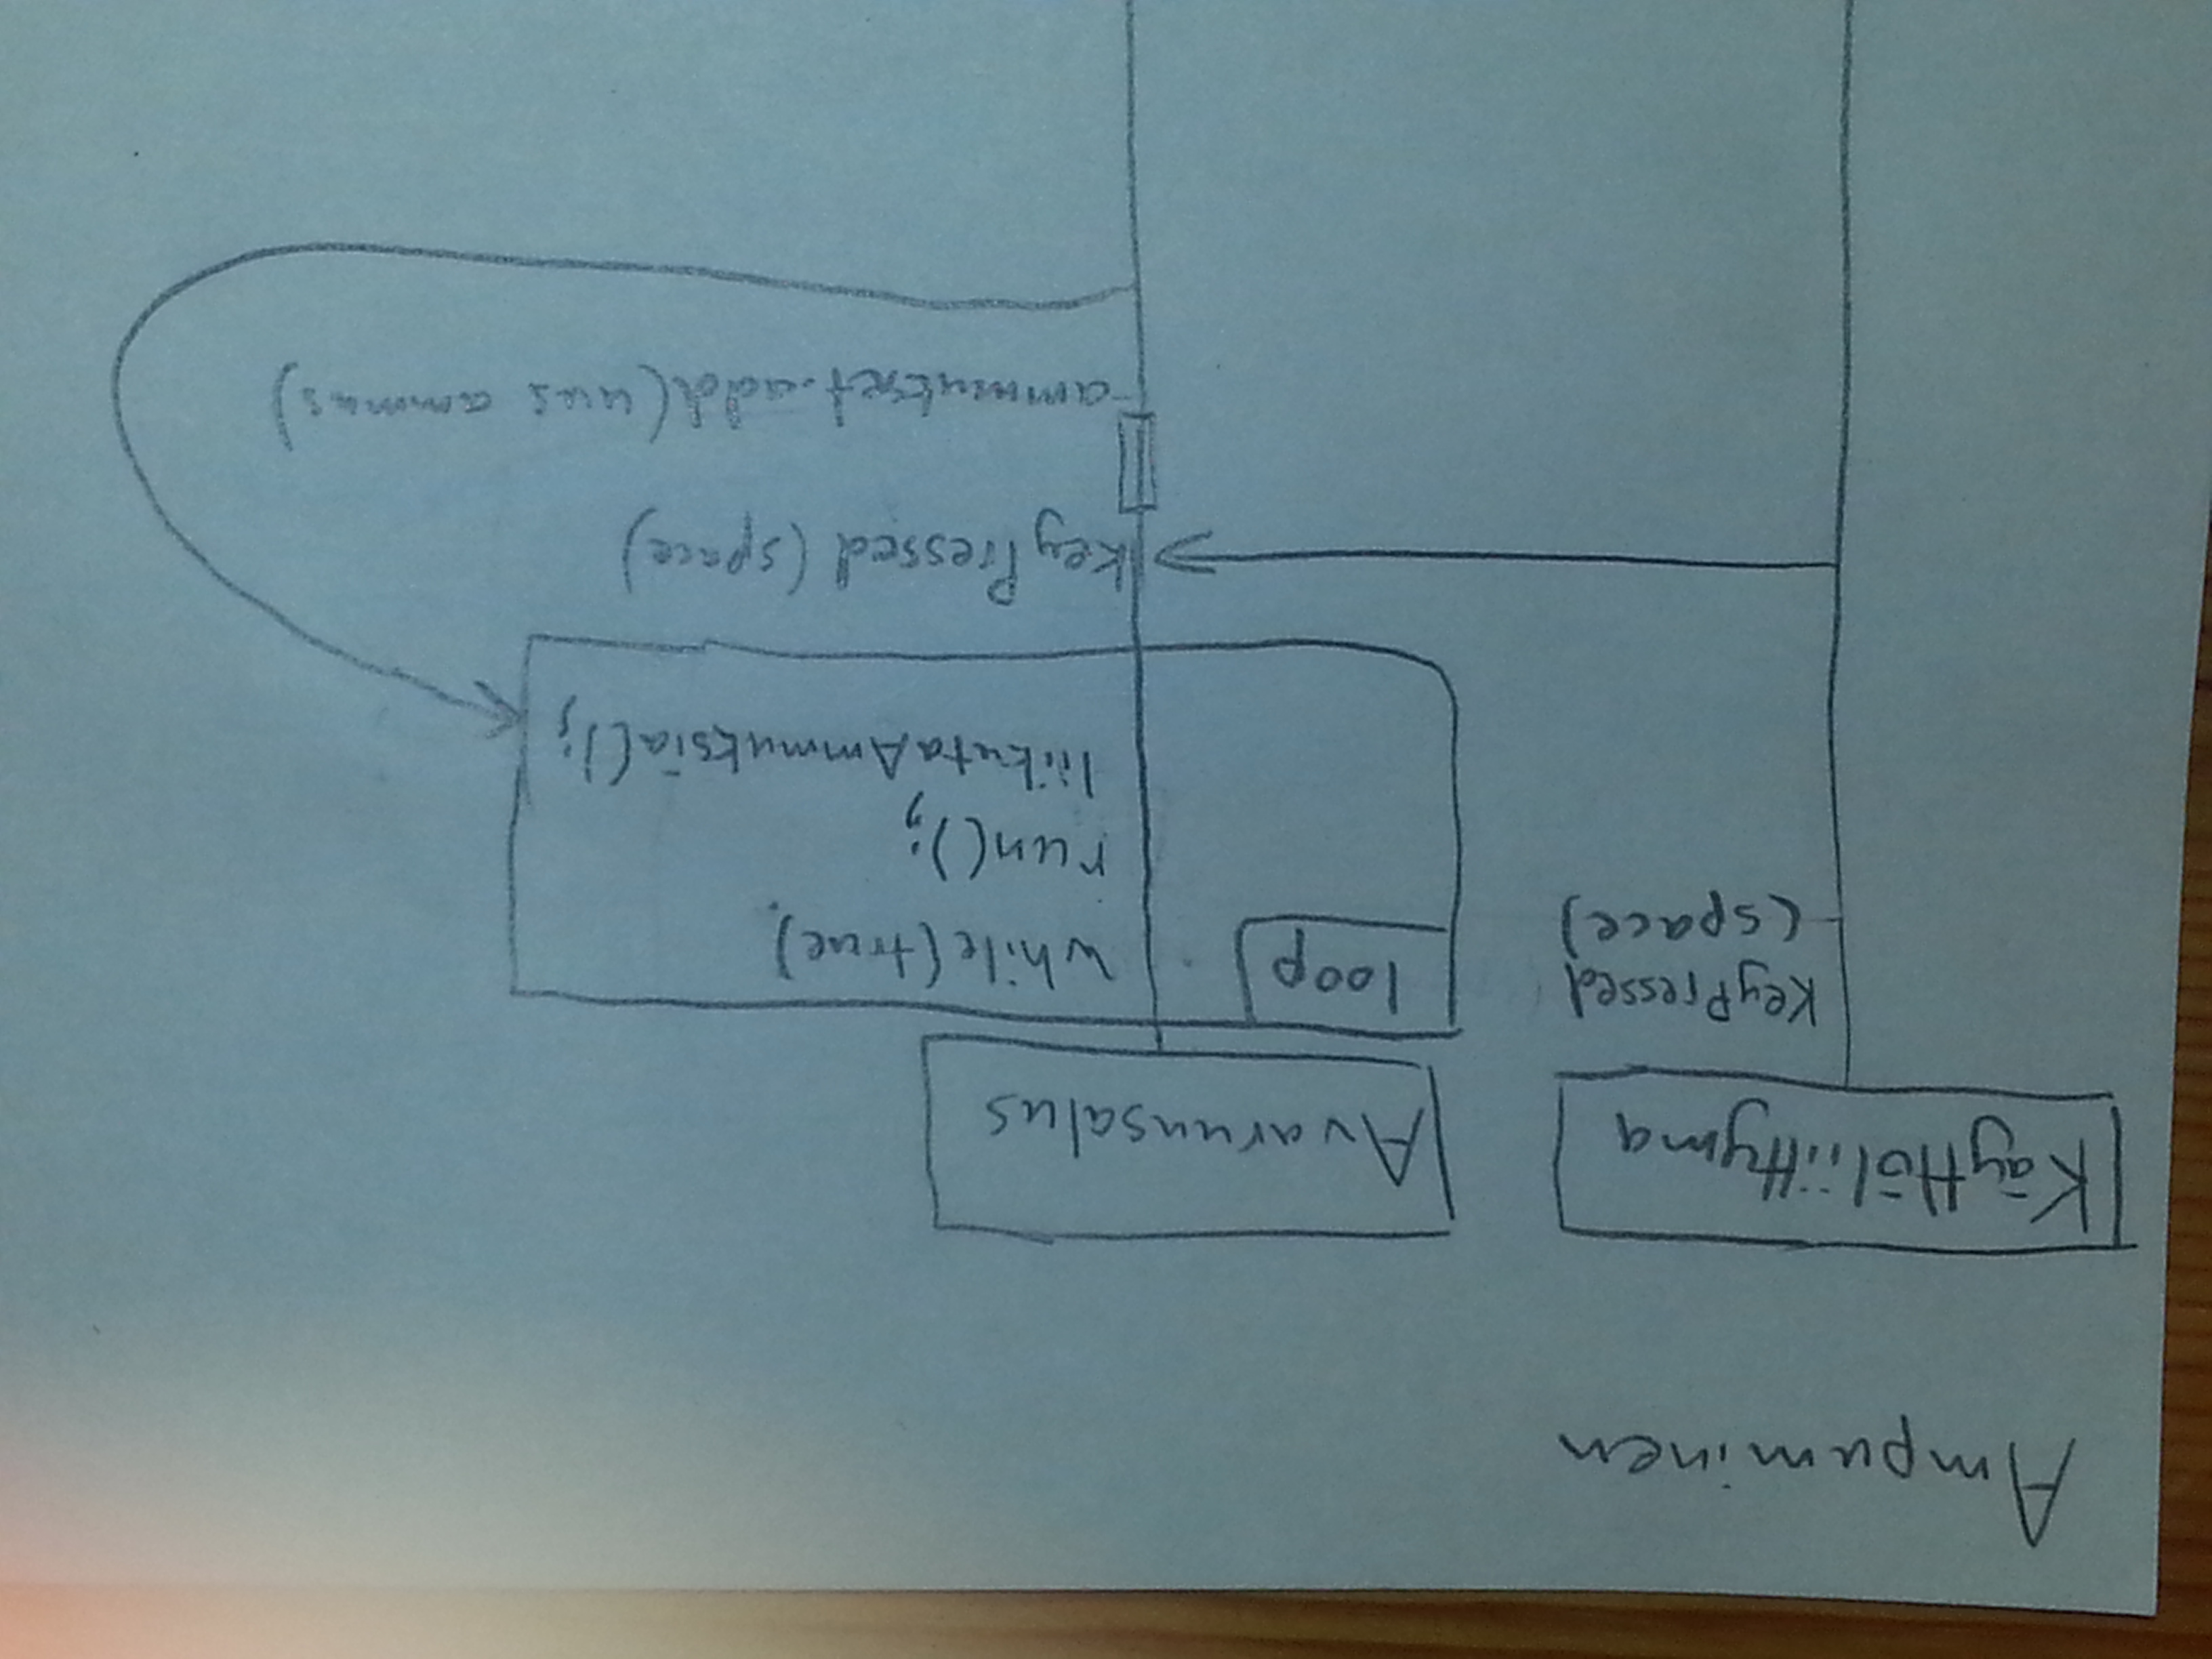 Ampuminen
Käyttöliittymä
Avaruusalus
KeyPressed
(space)
loop
while(true)
run();
liikutaAmmuksia();
keyPressed (space)
ammukset.add(uus ammus)